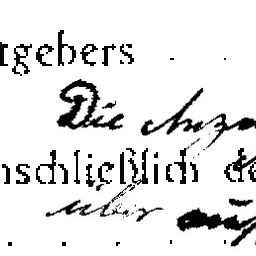 tgebers
Die Anz
nschließlich de
über auf